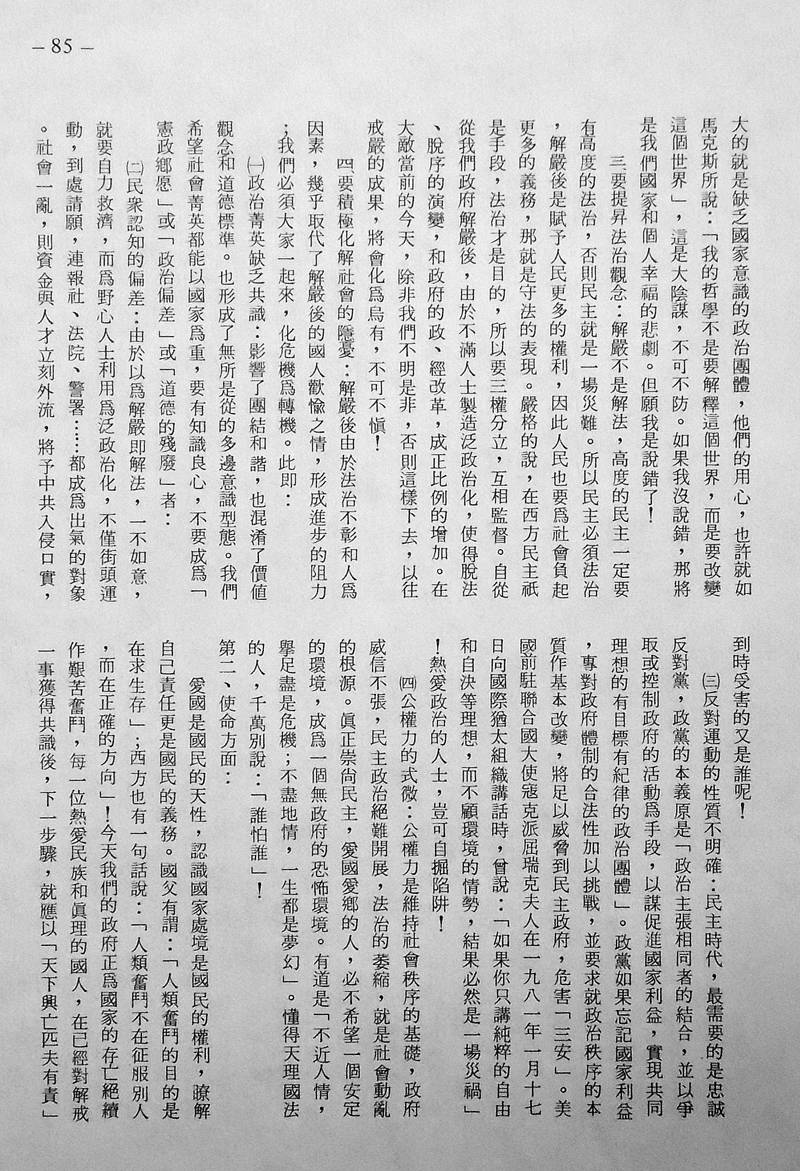 — 85 —
大的就是缺乏國家意識的政治團體，他們的用心，也許就如
馬克斯所說：「我的哲學不是要解釋這個世界，而是要改變
這個世界」，這是大陰謀，不可不防。如果我沒說錯，那將
是我們國家和個人幸福的悲劇。但願我是說錯了！
三、要提昇法治觀念：解嚴不是解法，高度的民主一定要
有高度的法治，否則民主就是一場災難。所以民主必須法治
，解嚴後是賦予人民更多的權利，因此人民也要爲社會負起
更多的義務，那就是守法的表現。嚴格的說，在西方民主祇
是手段，法治才是目的，所以要三權分立，互相監督。自從
從我們政府解嚴後，由於不滿人士製造泛政治化，使得脫法
、脫序的演變，和政府的政、經改革，成正比例的增加。在
大敵當前的今天，除非我們不明是非，否則這樣下去，以往
戒嚴的成果，將會化爲烏有，不可不愼！
四、要積極化解社會的隱憂：解嚴後由於法治不彰和人爲
因素，幾乎取代了解嚴後的國人歡愉之情，形成進步的阻力
；我們必須大家一起來，化危機爲轉機。此即：
㈠政治菁英缺乏共識：影響了團結和諧，也混淆了價値
觀念和道德標準。也形成了無所是從的多邊意識型態。我們
希望社會菁英都能以國家爲重，要有知識良心，不要成爲「
憲政鄉愿」或「政治偏差」或「道德的殘廢」者：
㈡民衆認知的偏差：由於以爲解嚴即解法，一不如意，
就要自力救濟，而爲野心人士利用爲泛政治化，不僅街頭運
動，到處請願，連報社、法院、警署……都成爲出氣的對象
。社會一亂，則資金與人才立刻外流，將予中共入侵口實，
到時受害的又是誰呢！
㈢反對運動的性質不明確：民主時代，最需要的是忠誠
反對黨，政黨的本義原是「政治主張相同者的結合，並以爭
取或控制政府的活動爲手段，以謀促進國家利益，實現共同
理想的有目標有紀律的政治團體」。政黨如果忘記國家利益
，專對政府體制的合法性加以挑戰，並要求就政治秩序的本
質作基本改變，將足以威脅到民主政府，危害「三安」。美
國前駐聯合國大使寇克派屈瑞克夫人在一九八一年一月十七
日向國際猶太組織講話時，曾說：「如果你只講純粹的自由
和自決等理想，而不顧環境的情勢，結果必然是一場災禍」
！熱愛政治的人士，豈可自掘陷阱！
㈣公權力的式微：公權力是維持社會秩序的基礎，政府
威信不張，民主政治絕難開展，法治的萎縮，就是社會動亂
的根源。眞正崇尚民主，愛國愛鄉的人，必不希望一個安定
的環境，成爲一個無政府的恐怖環境。有道是「不近人情，
擧足盡是危機；不盡地情，一生都是夢幻」。懂得天理國法
的人，千萬別說：「誰怕誰」！
第二、使命方面：
愛國是國民的天性，認識國家處境是國民的權利，瞭解
自己責任更是國民的義務。國父有謂：「人類奮鬥的目的是
在求生存」；西方也有一句話說：「人類奮鬥不在征服別人
，而在正確的方向」！今天我們的政府正爲國家的存亡絕續
作艱苦奮鬥，每一位熱愛民族和眞理的國人，在已經對解戒
一事獲得共識後，下一步驟，就應以「天下興亡匹夫有責」